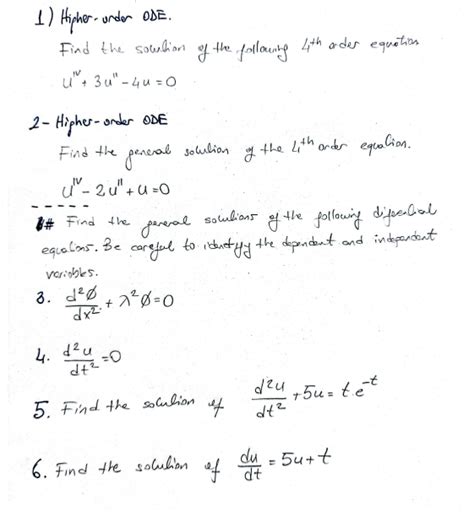 1) Higher-order ODE.
Find the solution of the following 4th order equation
u^IV + 3u" - 4u = 0
2- Higher-order ODE
Find the general solution of the 4th order equation.
u^IV - 2u" + u = 0
# Find the general solutions of the following diferential
equations. Be careful to identify the dependent and independent
variables.
3. d²Ø/dx² + λ²Ø = 0
4. d²u/dt² = 0
5. Find the solution of d²u/dt² + 5u = t.e^-t
6. Find the solution of du/dt = 5u + t